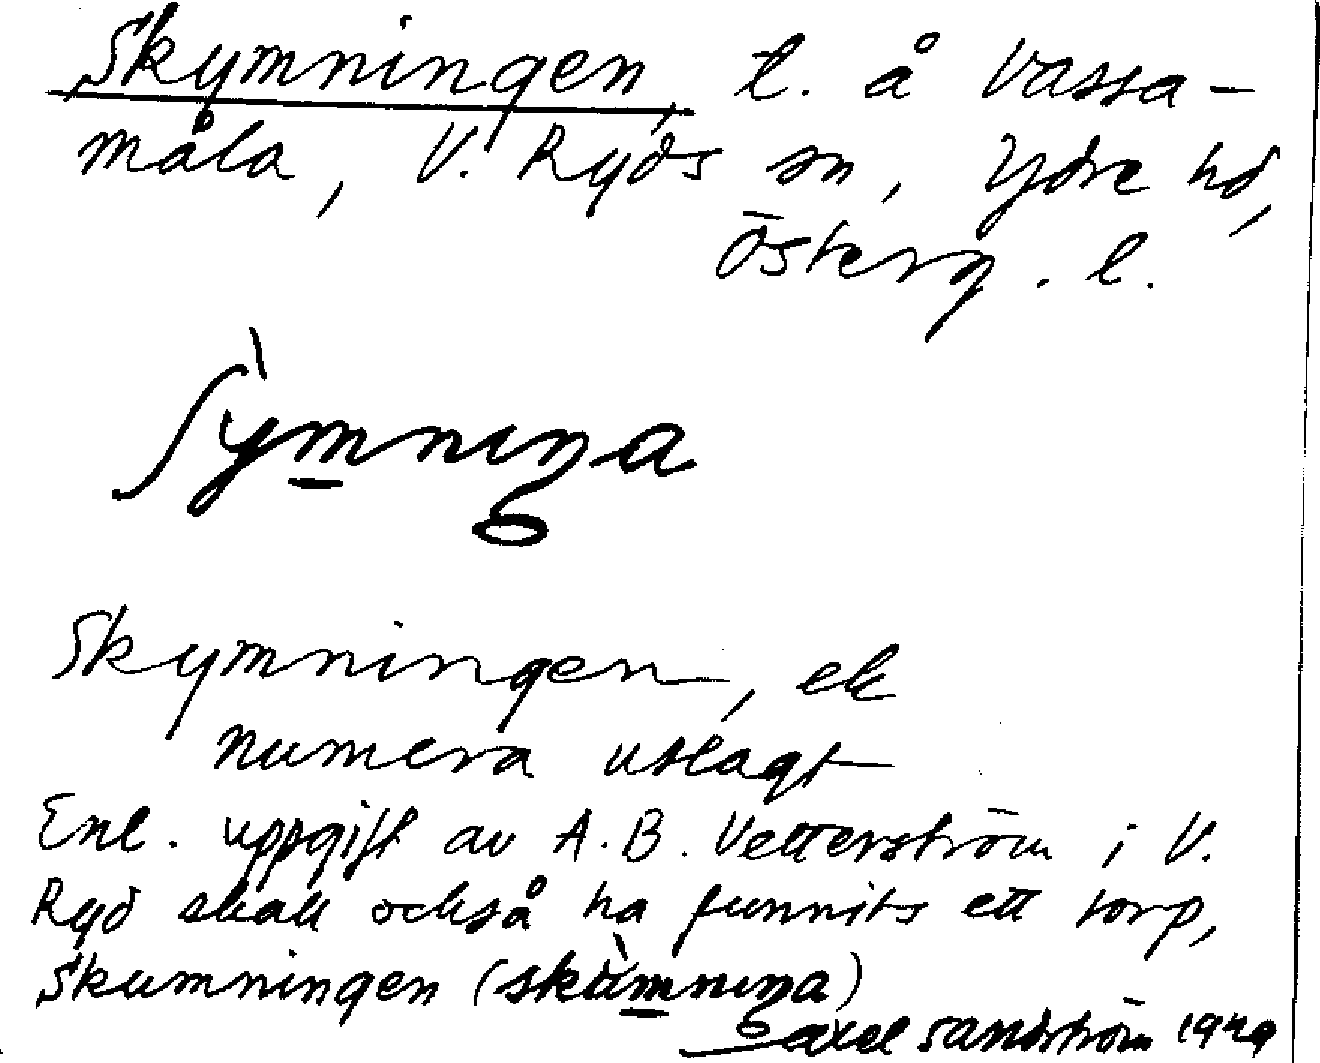 Skymningen, t. å Vassa-
måla, V. Ryds sn, Ydre hd,
Österg. l.
ʃỳmnıŋa
Skymningen, ek
numera utlagt
Enl. uppgift av A. B. Vetterström i V.
Ryd skall också ha funnits ett torp,
Skumningen (skùmnıŋa)
Axel Sandström 1949